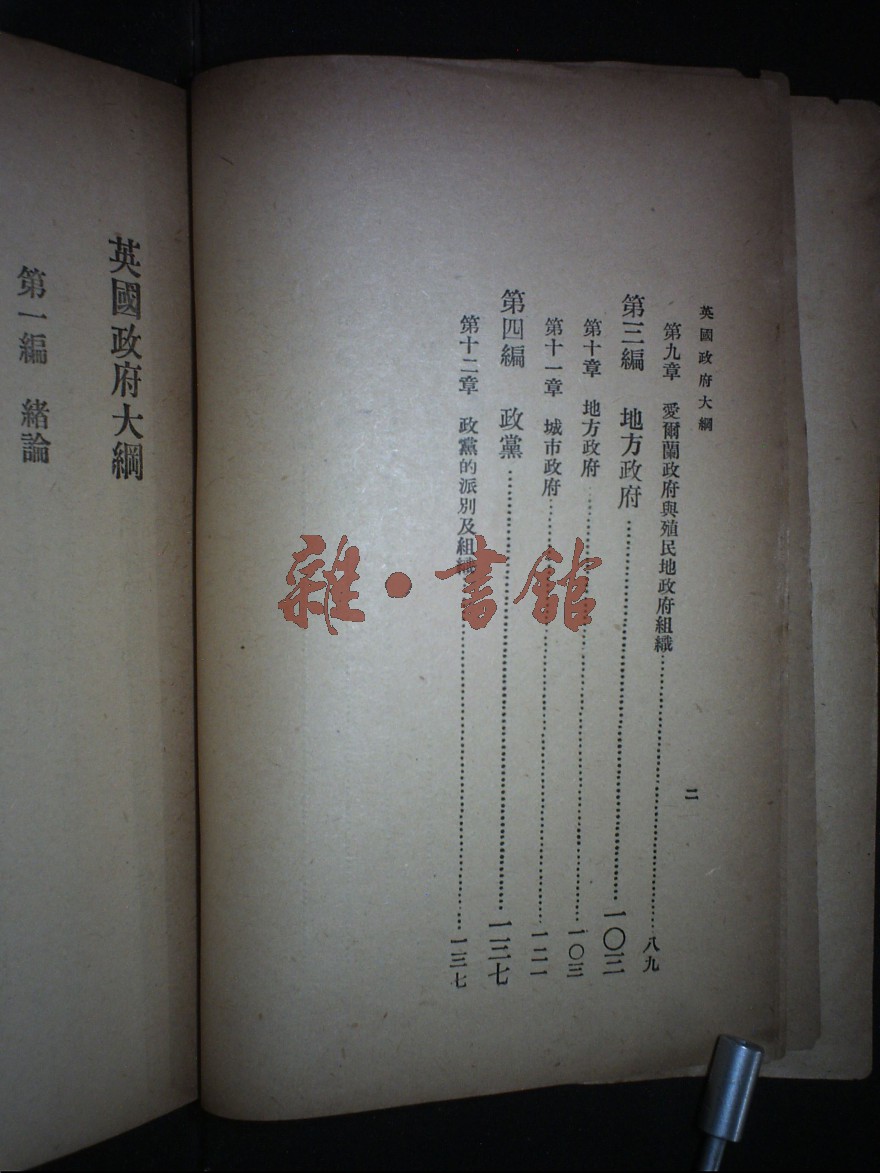 英國政府大綱
第九章　愛爾蘭政府與殖民地政府組織……八九
第三編　地方政府……一〇三
第十章　地方政府……一〇三
第十一章　城市政府……一二一
第四編　政黨……一三七
第十二章　政黨的派別及組織……一三七
二
英國政府大綱
第一編　緒論
雜·書館